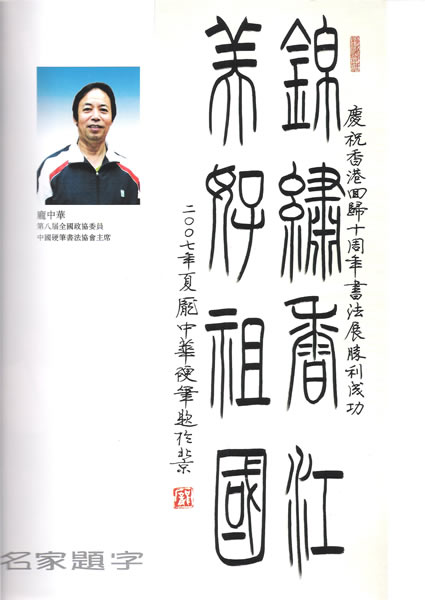 慶祝香港回歸十周年書法展勝利成功
錦繡香江
美好祖國
二〇〇七年夏龐中華硬筆題於北京
龐中華
第八届全國政協委員
中國硬筆書法協會主席
名家題字